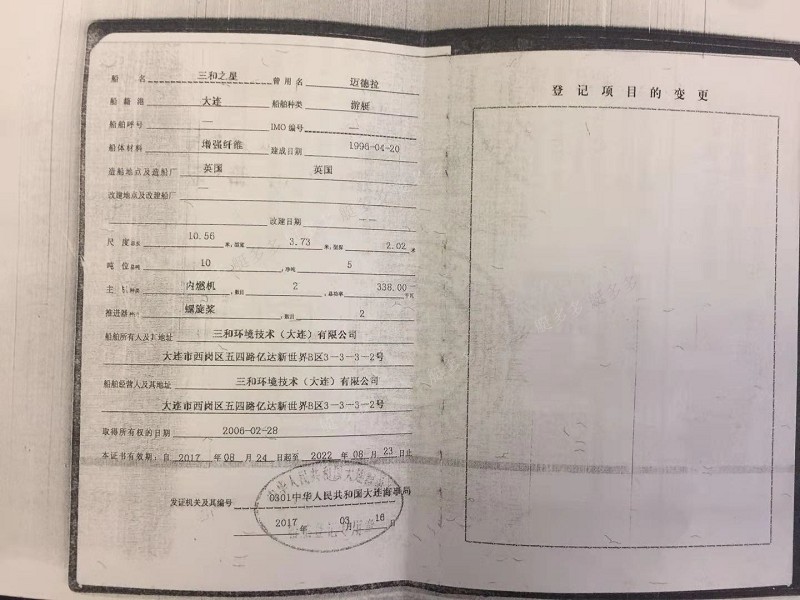 船 名 三和之星 曾用名 迈德拉
船籍港 大连 船舶种类 游艇
船舶呼号 — IMO编号 —
船体材料 增强纤维 建成日期 1996-04-20
造船地点及造船厂 英国 英国
改建地点及改建船厂 —
改建日期 — —
尺度 总长 10.56 米, 型宽 3.73 米, 型深 2.02 米
吨位 总吨 10 , 净吨 5
主机 种类 内燃机 , 数目 2 , 总功率 338.00 千瓦
推进器 种类 螺旋桨 , 数目 2
船舶所有人及其地址 三和环境技术(大连)有限公司
大连市西岗区五四路亿达新世界B区3-3-3-2号
船舶经营人及其地址 三和环境技术(大连)有限公司
大连市西岗区五四路亿达新世界B区3-3-3-2号
取得所有权的日期 2006-02-28
本证书有效期:自 2017 年 08 月 24 日起至 2022 年 08 月 23 日止
发证机关及其编号 0301中华人民共和国大连海事局
2017 年 03 月 16 日
登记项目的变更